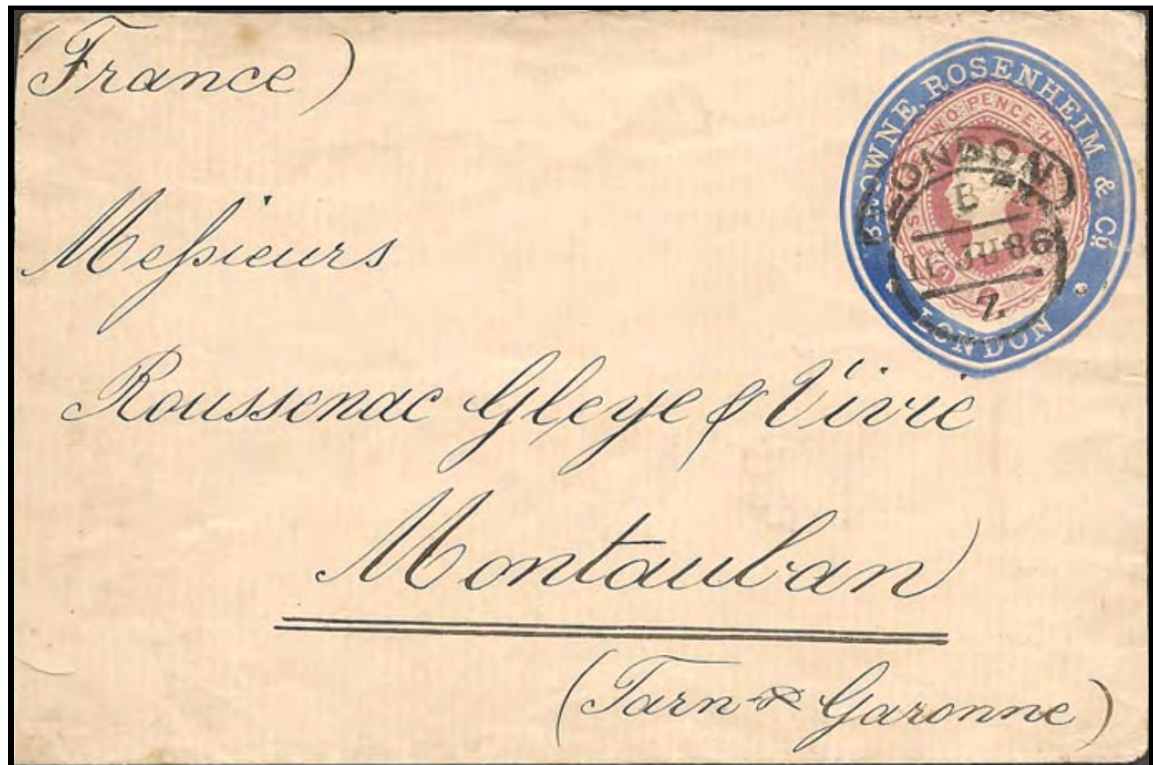 (France)
BROWNE, ROSENHEIM & Co.
LONDON
TWO PENCE
LONDON
B
16 JU 86
Z
Messieurs
Roussenac Gleye & Vivie
Montauban
(Tarn & Garonne)